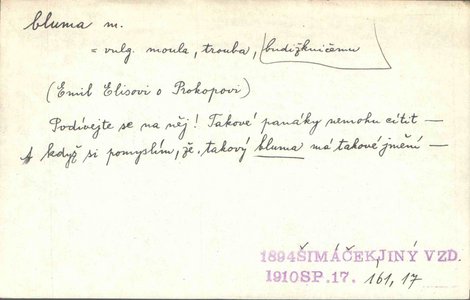 bluma m.
= vulg. moula, trouba, budižkničemu
(Emil Elisovi o Prokopovi)
Podívejte se na něj! Takové panáky nemohu cítit —
když si pomyslím, že takový bluma má takové jmění —
1894ŠIMÁČEKJINÝ VZD.
1910SP.17. 161, 17